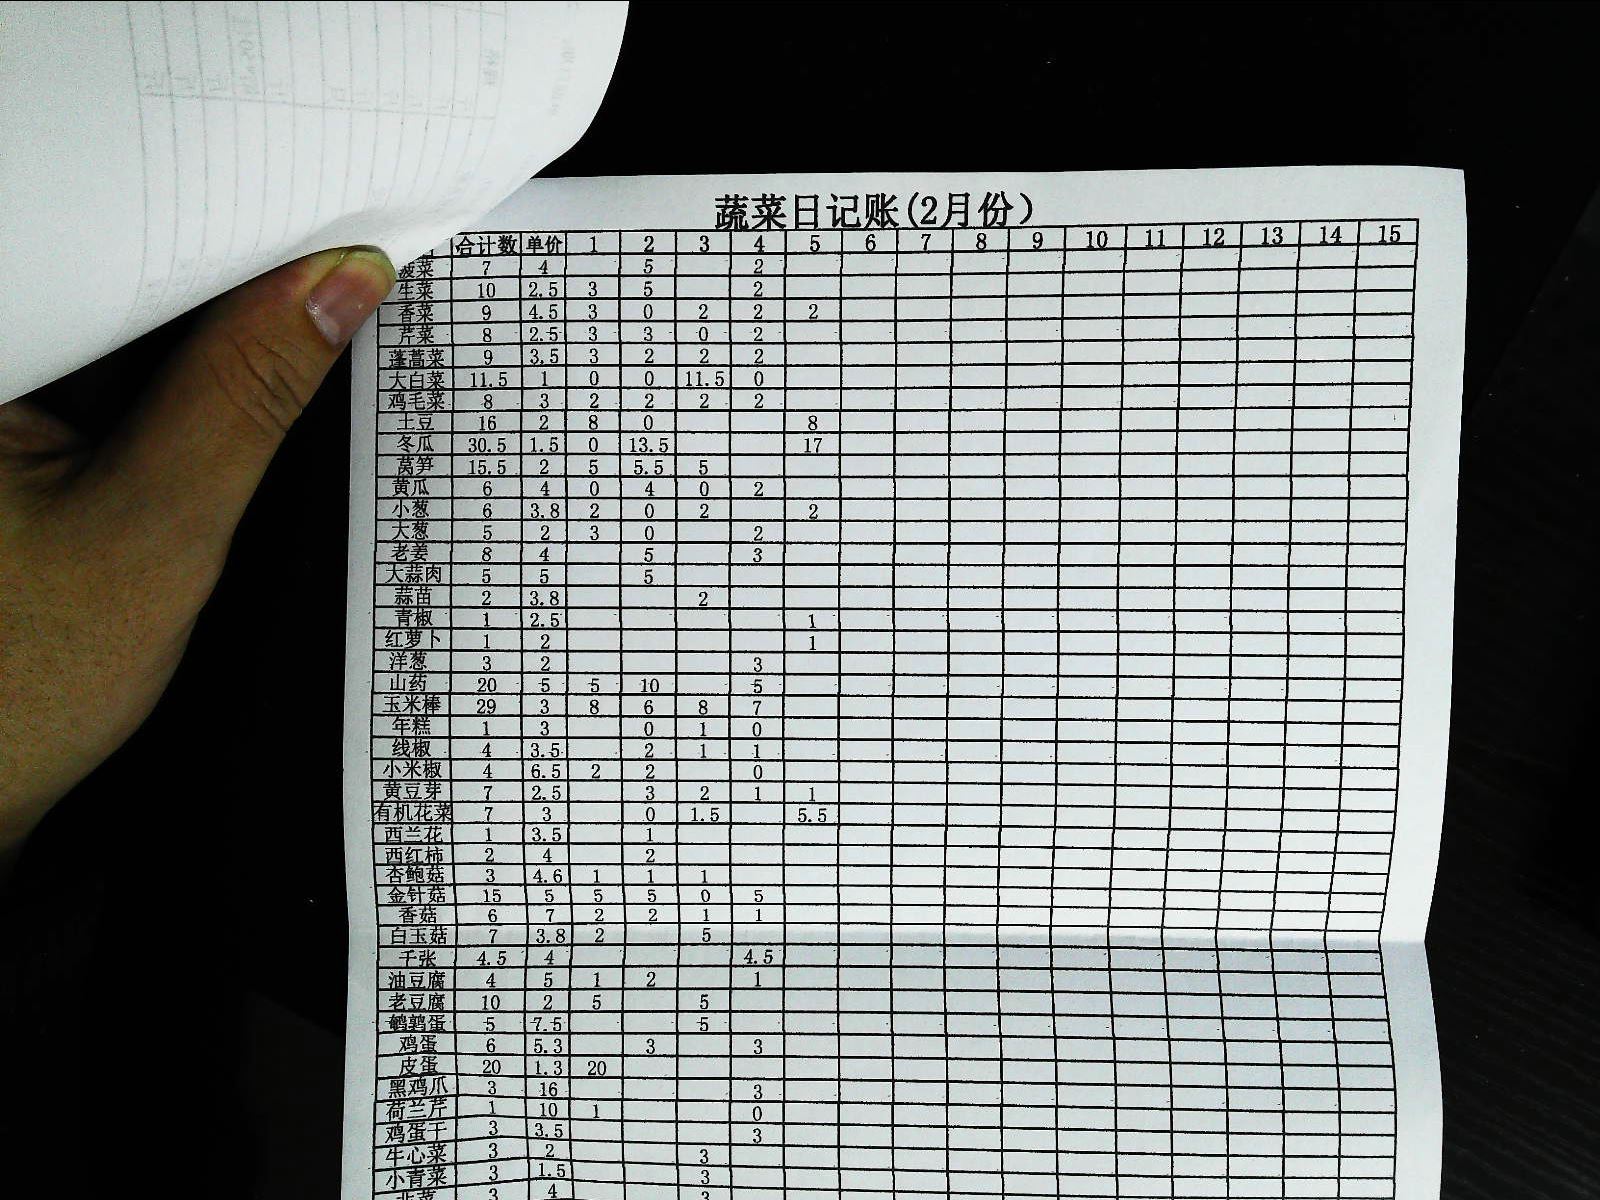 蔬菜日记账(2月份)
合计数 单价 1 2 3 4 5 6 7 8 9 10 11 12 13 14 15
菠菜 7 4 5 2
生菜 10 2.5 3 5 2
香菜 9 4.5 3 0 2 2 2
芹菜 8 2.5 3 3 0 2
蓬蒿菜 9 3.5 3 2 2 2
大白菜 11.5 1 0 0 11.5 0
鸡毛菜 8 3 2 2 2 2
土豆 16 2 8 0 8
冬瓜 30.5 1.5 0 13.5 17
莴笋 15.5 2 5 5.5 5
黄瓜 6 4 0 4 0 2
小葱 6 3.8 2 0 2 2
大葱 5 2 3 0 2
老姜 8 4 5 3
大蒜肉 5 5 5
蒜苗 2 3.8 2
青椒 1 2.5 1
红萝卜 1 2 1
洋葱 3 2 3
山药 20 5 5 10 5
玉米棒 29 3 8 6 8 7
年糕 1 3 0 1 0
线椒 4 3.5 2 1 1
小米椒 4 6.5 2 2 0
黄豆芽 7 2.5 3 2 1 1
有机花菜 7 3 0 1.5 5.5
西兰花 1 3.5 1
西红柿 2 4 2
杏鲍菇 3 4.6 1 1 1
金针菇 15 5 5 5 0 5
香菇 6 7 2 2 1 1
白玉菇 7 3.8 2 5
千张 4.5 4 4.5
油豆腐 4 5 1 2 1
老豆腐 10 2 5 5
鹌鹑蛋 5 7.5 5
鸡蛋 6 5.3 3 3
皮蛋 20 1.3 20
黑鸡爪 3 16 3
荷兰芹 1 10 1 0
鸡蛋干 3 3.5 3
牛心菜 3 2 3
小青菜 3 1.5 3
韭菜 3 4 3